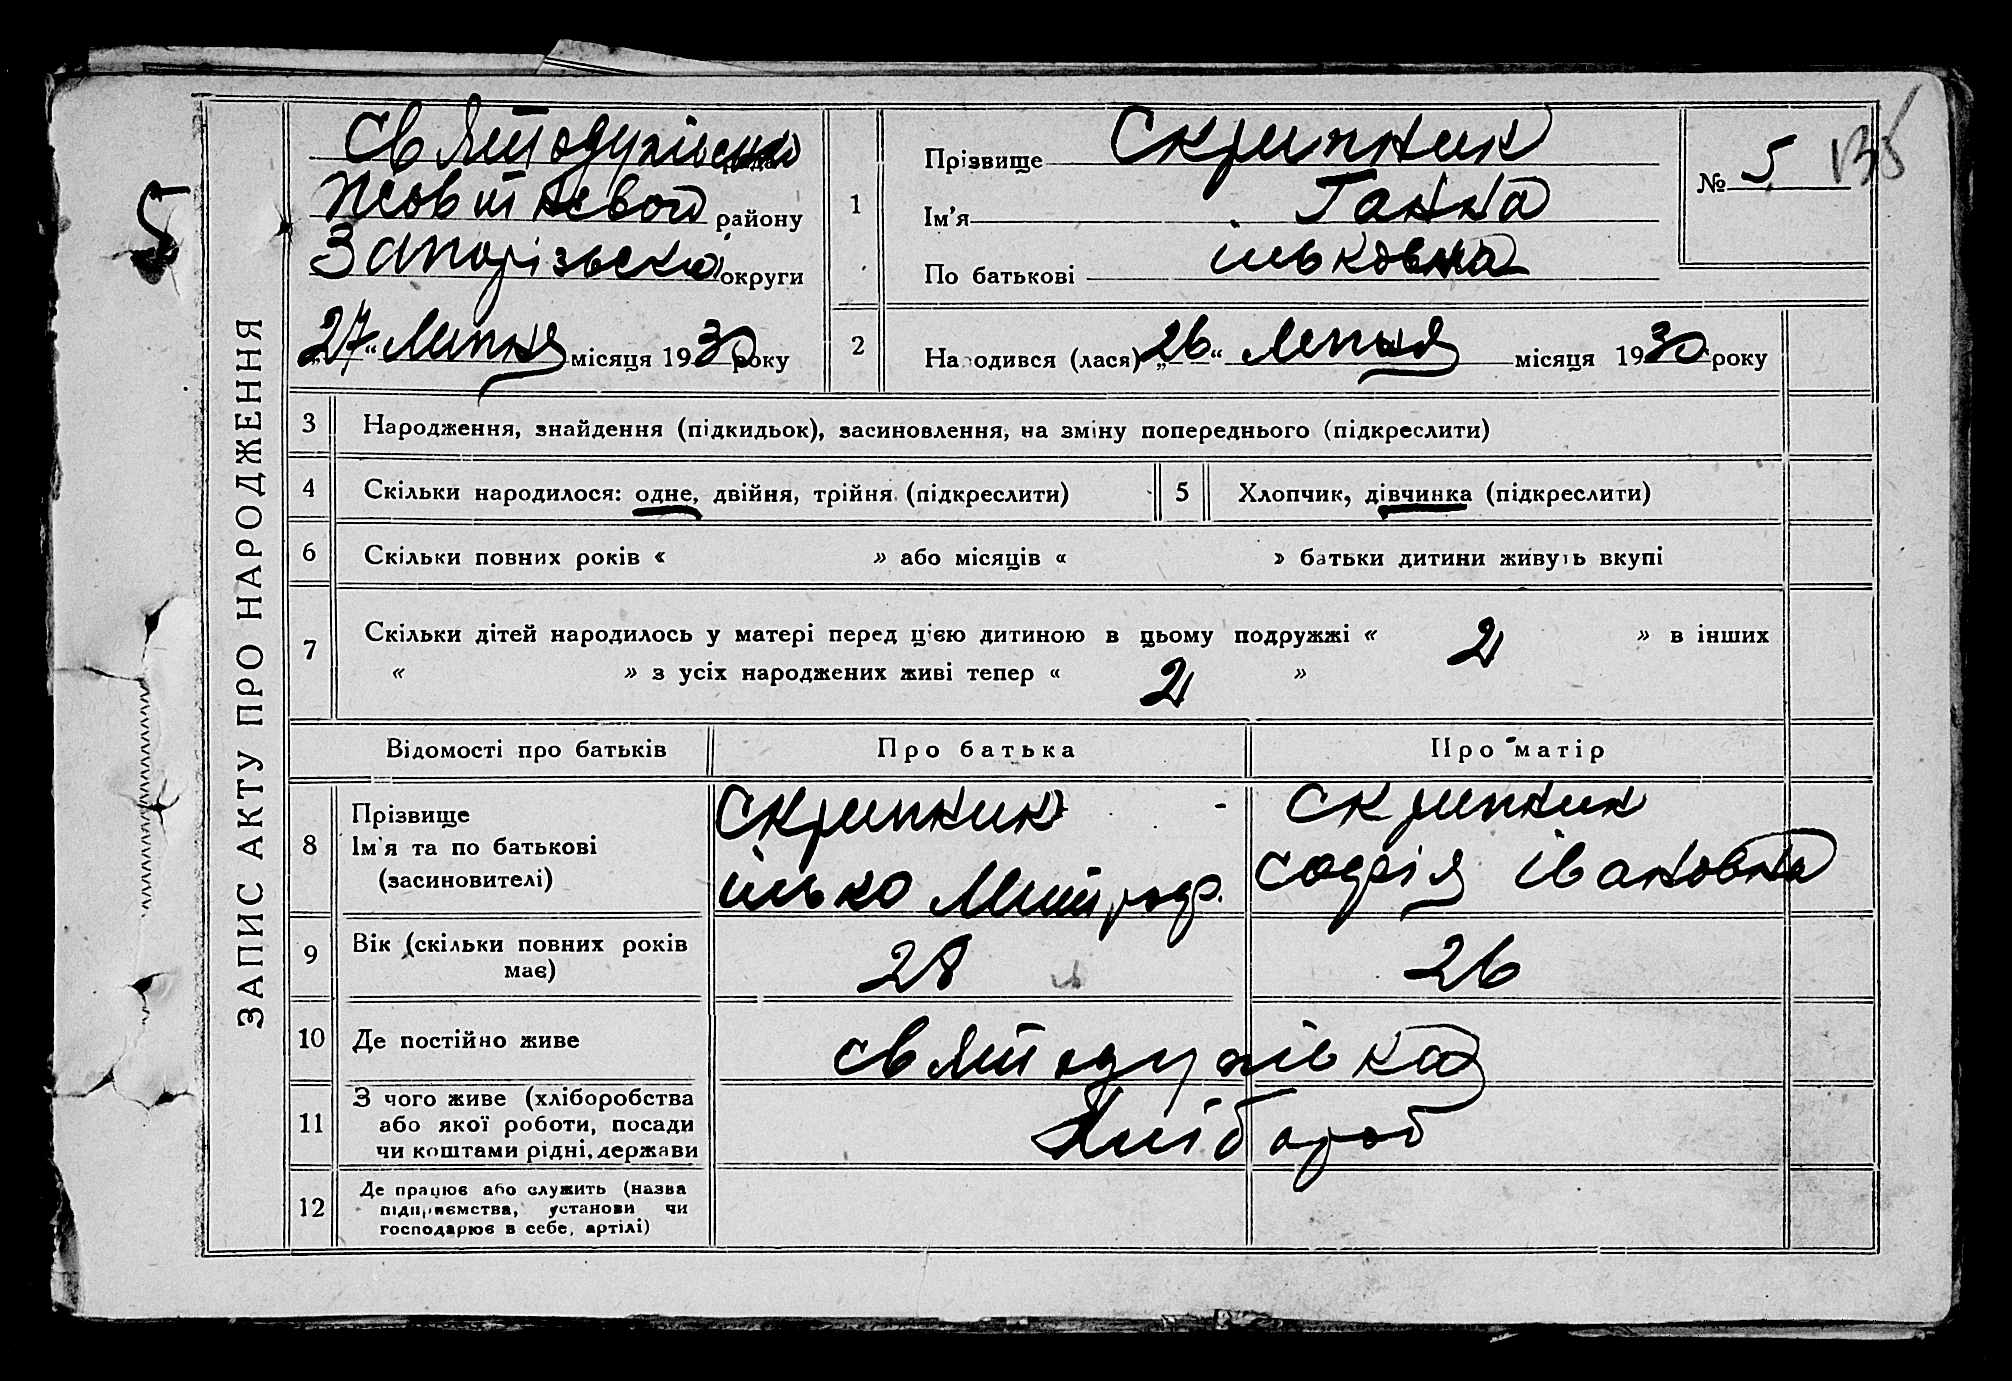 ЗАПИС АКТУ ПРО НАРОДЖЕННЯ
5
Святодухівська рада
Жовтневого району
Запорізської округи
„27“ Липня місяця 1930 року
1
Прізвище Скрипник
Ім'я Ганна
По батькові ільковна
№ 5
135
2
Народився (лася) „26“ Липня місяця 1930 року
3 Народження, знайдення (підкидьок), засиновлення, на зміну попереднього (підкреслити)
4 Скільки народилося: одне, двійня, трійня (підкреслити) 5 Хлопчик, дівчинка (підкреслити)
6 Скільки повних років « » або місяців « » батьки дитини живуть вкупі
7 Скільки дітей народилось у матері перед цією дитиною в цьому подружжі « 2 » в інших
« » з усіх народжених живі тепер « 2 »
Відомості про батьків Про батька Про матір
8 Прізвище
Ім'я та по батькові
(засиновителі)
Скрипник
ілько Митроф.
Скрипник
софія івановна
9 Вік (скільки повних років
має)
28 26
10 Де постійно живе святодухівка
11 З чого живе (хліборобства
або якої роботи, посади
чи коштами рідні, держави
Хлібороб
12 Де працює або служить (назва
підприємства, установи чи
господарює в себе, артілі)